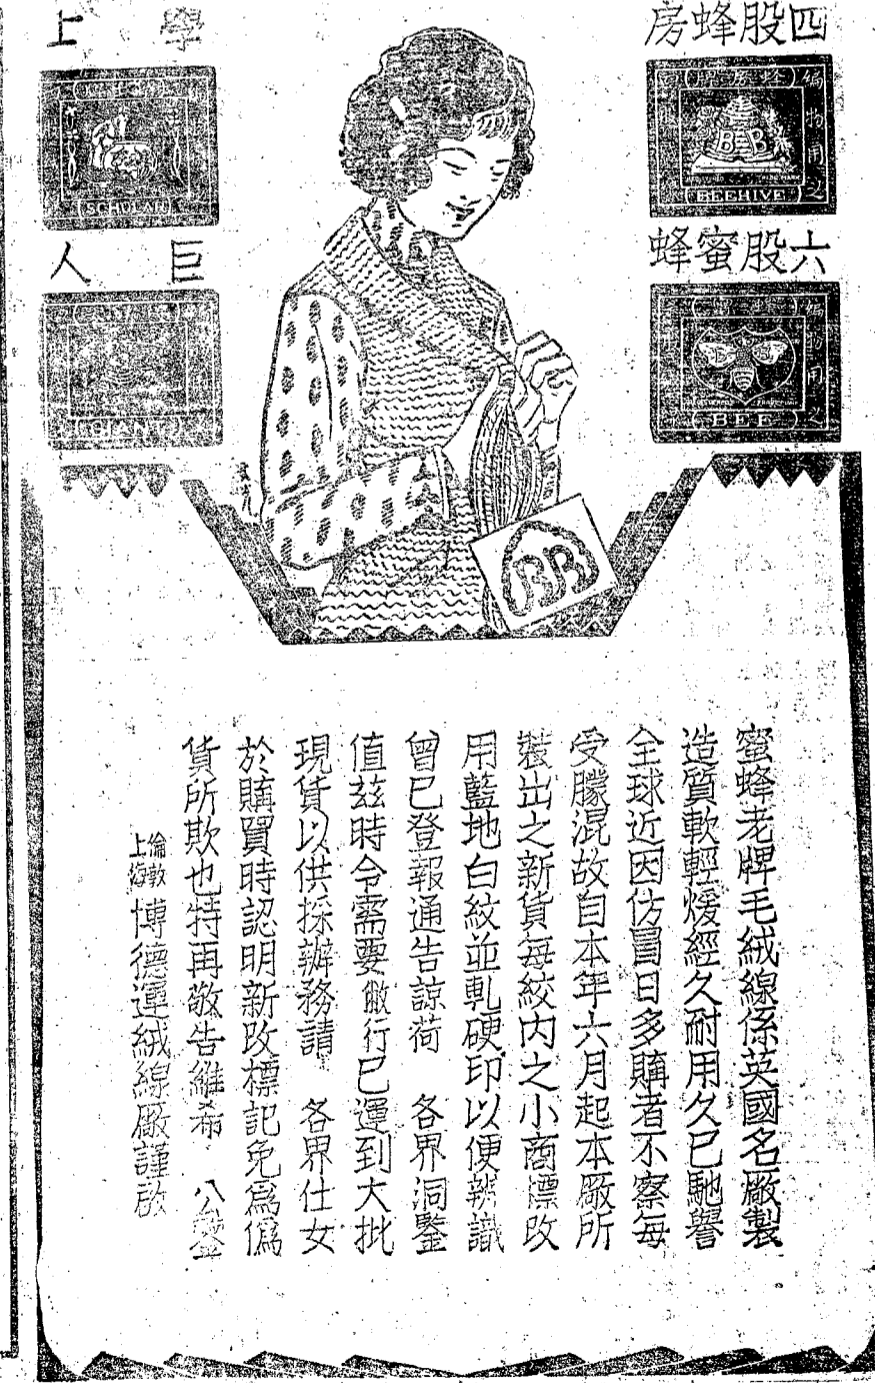 四股蜂房
蜂房牌
編物用之
BB
BEEHIVE
六股蜜蜂
編物用之
BEE
學士
SCHOLAR
巨人
GIANT
BB
蜜蜂老牌毛絨線係英國名廠製
造質軟輕煖經久耐用久已馳譽
全球近因仿冒日多購者不察每
受朦混故自本年六月起本廠所
裝出之新貨每絞內之小商標改
用藍地白紋並軋硬印以便辨識
曾已登報通告諒荷 各界洞鑒
值茲時令需要敝行已運到大批
現貨以供採辦務請 各界仕女
於購買時認明新改標記免為偽
貨所欺也特再敬告維希 公鑒
倫敦
上海
博德運絨線廠謹啟